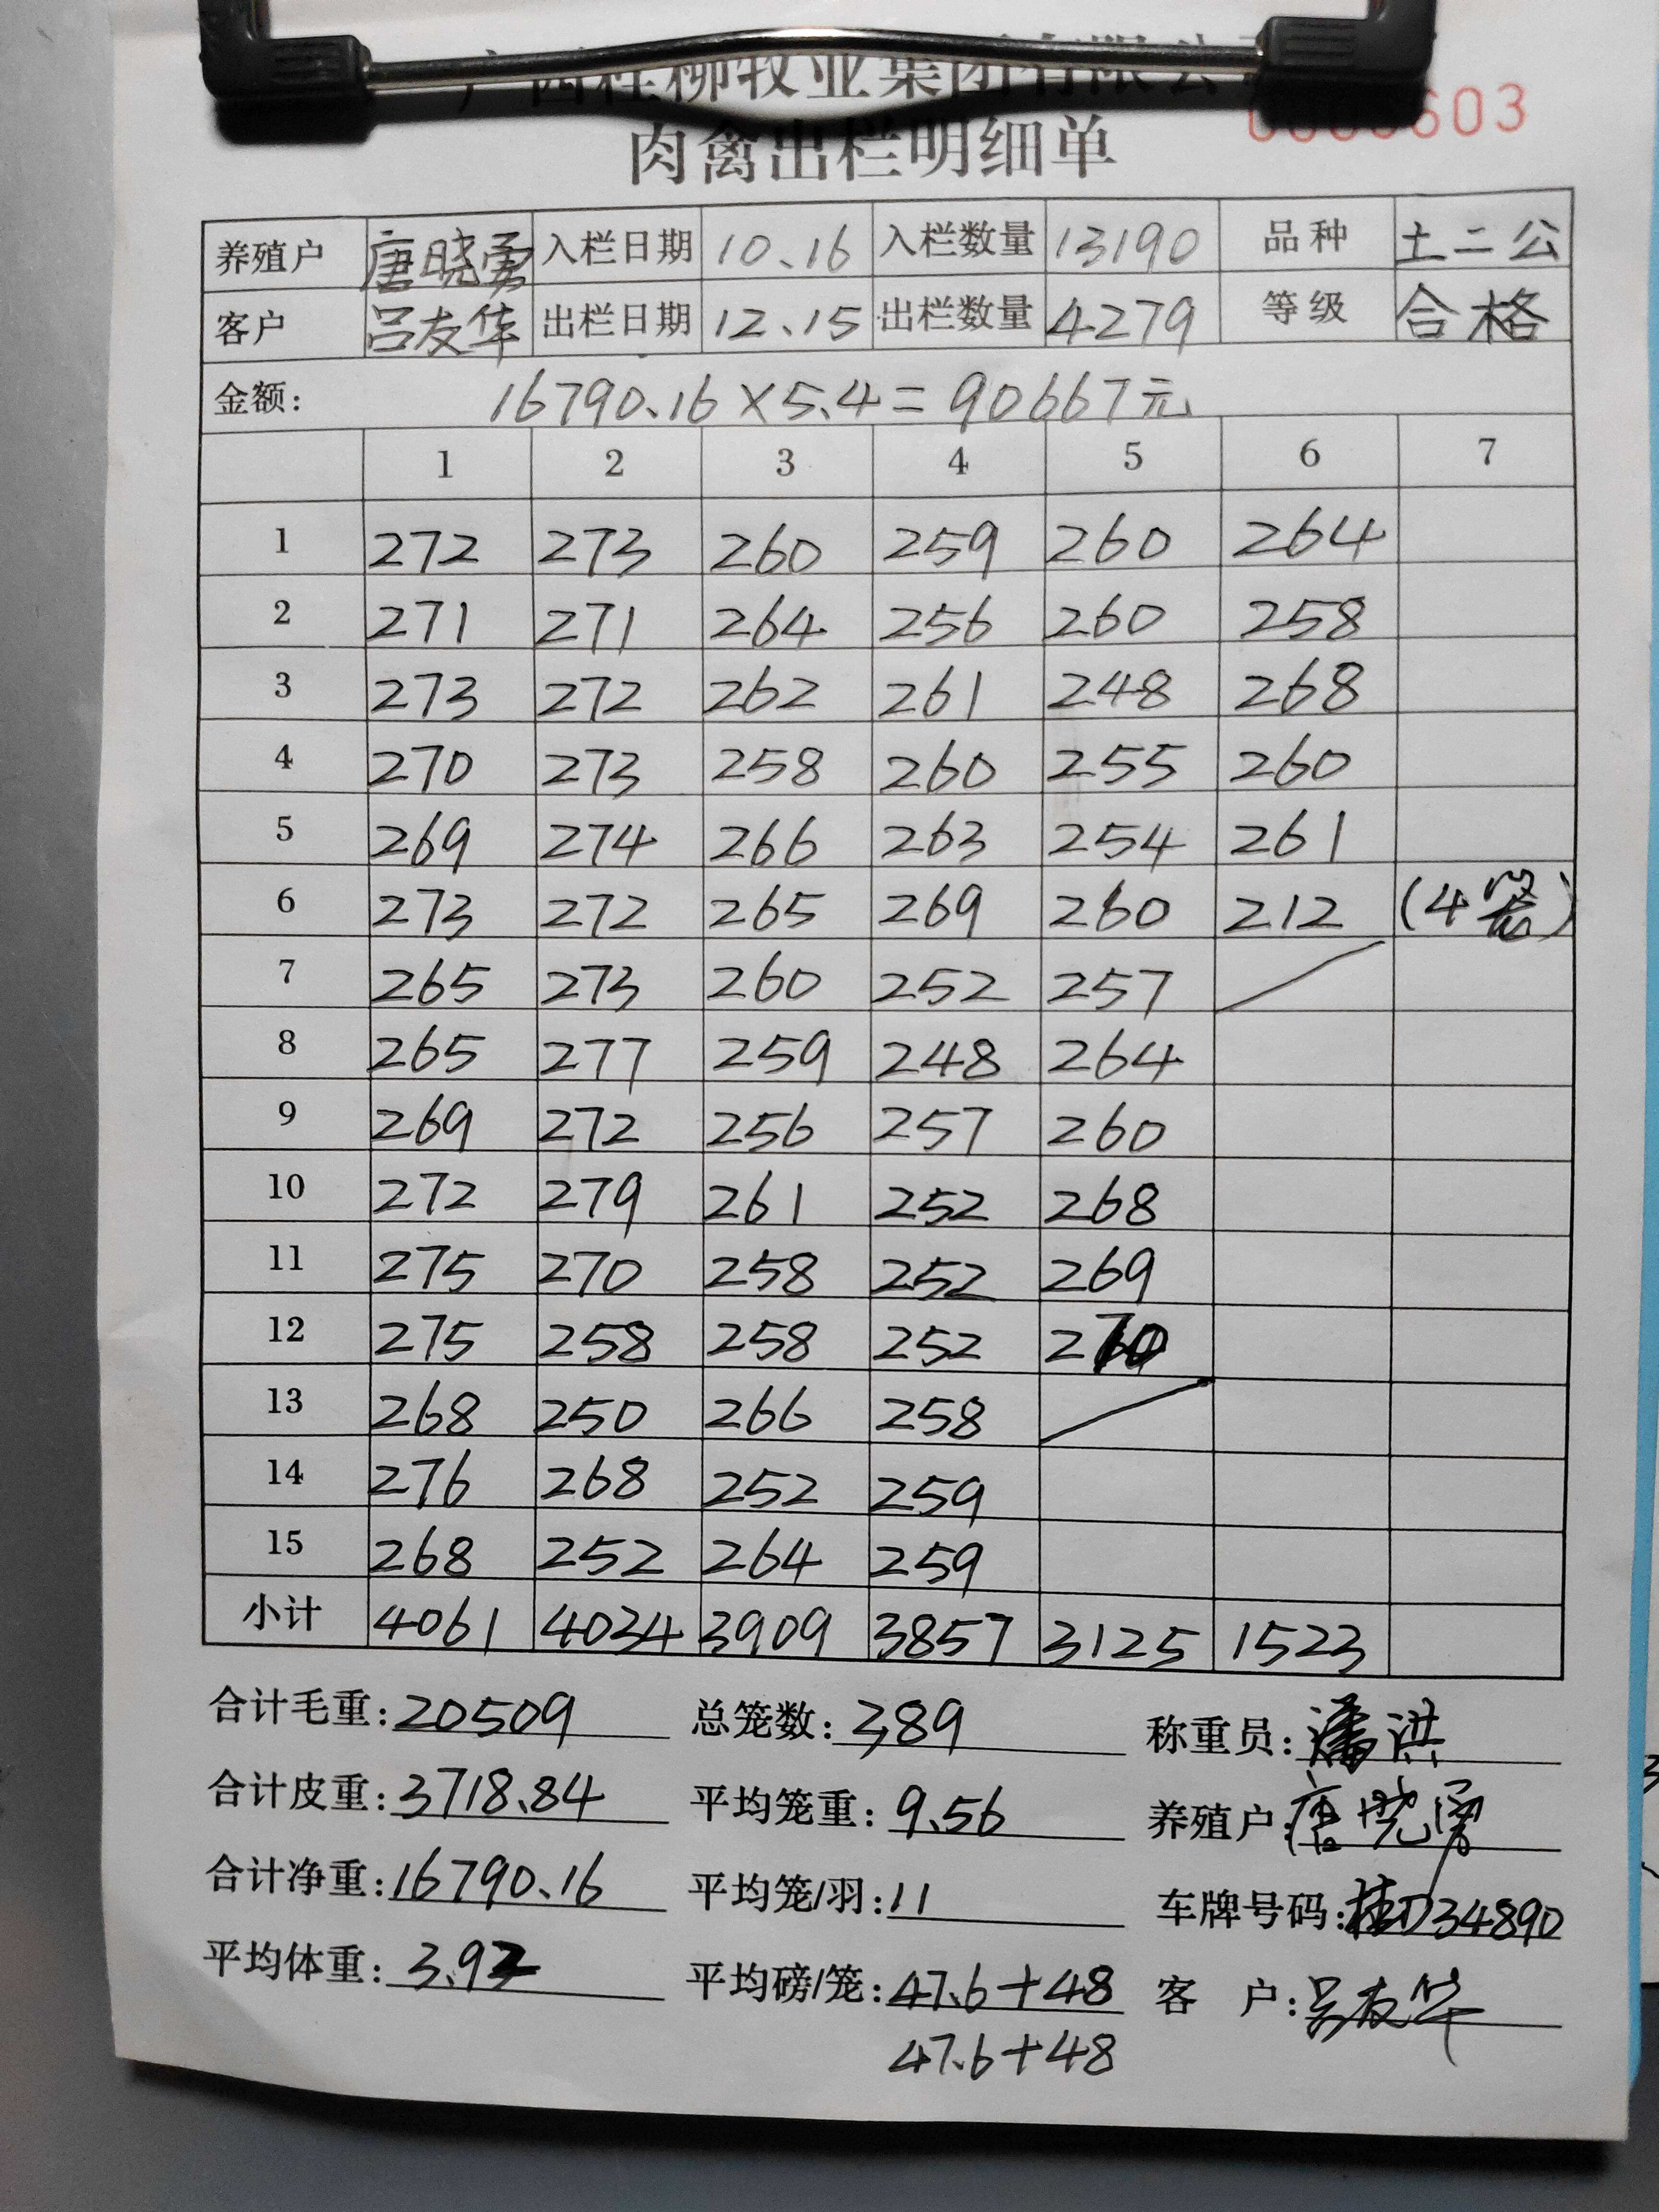 广西桂柳牧业集团有限公
肉禽出栏明细单
603
养殖户 唐晓勇 入栏日期 10.16 入栏数量 13190 品种 土二公
客户 吕友华 出栏日期 12.15 出栏数量 4279 等级 合格
金额: 16790.16×5.4=90667元
1 2 3 4 5 6 7
1 272 273 260 259 260 264
2 271 271 264 256 260 258
3 273 272 262 261 248 268
4 270 273 258 260 255 260
5 269 274 266 263 254 261
6 273 272 265 269 260 212 (4笼)
7 265 273 260 252 257
8 265 277 259 248 264
9 269 272 256 257 260
10 272 279 261 252 268
11 275 270 258 252 269
12 275 258 258 252 270
13 268 250 266 258
14 276 268 252 259
15 268 252 264 259
小计 4061 4034 3909 3857 3125 1523
合计毛重: 20509 总笼数: 389 称重员: 潘洪
合计皮重: 3718.84 平均笼重: 9.56 养殖户: 唐晓勇
合计净重: 16790.16 平均笼/羽: 11 车牌号码: 桂D34890
平均体重: 3.92 平均磅/笼: 47.6+48 客 户: 吕友华
47.6+48